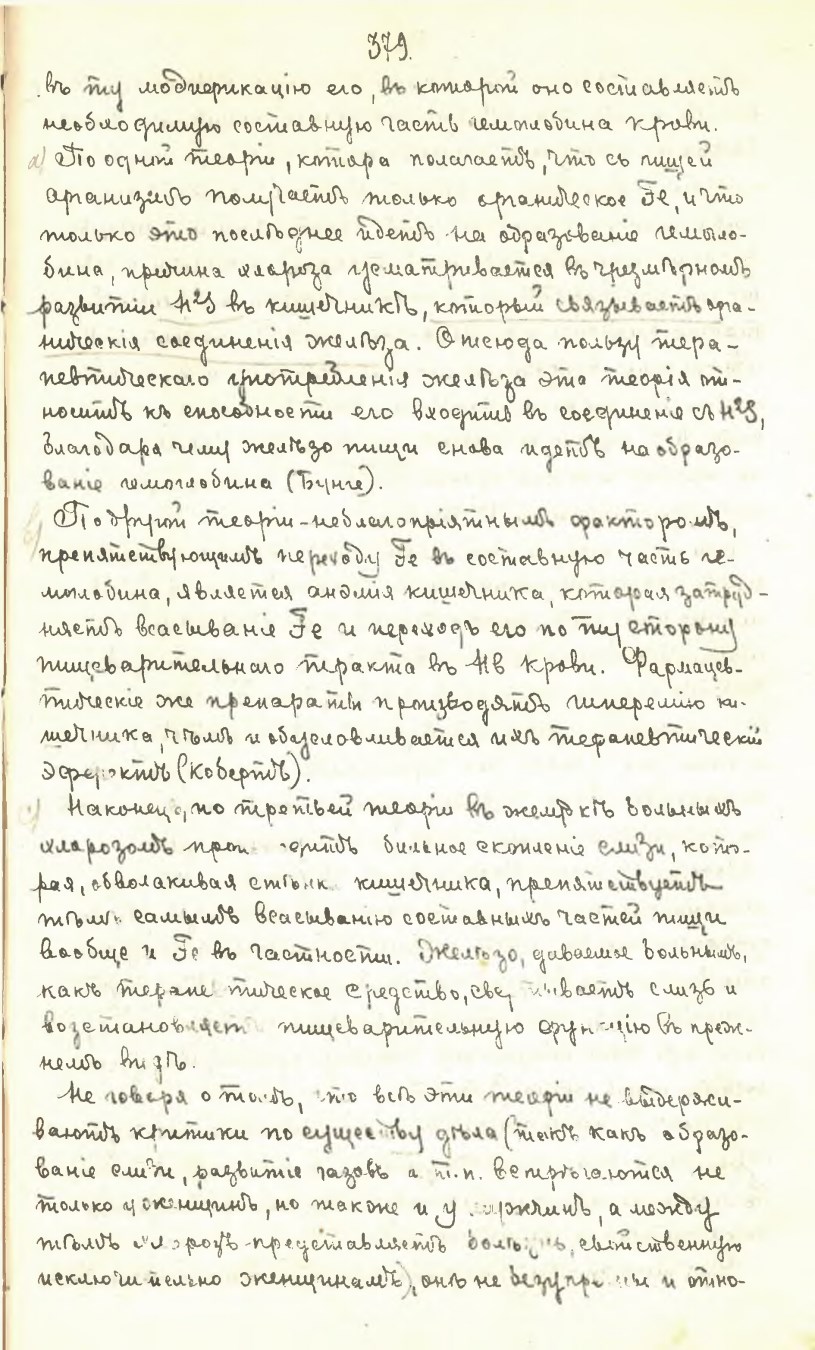 379.
въ ту модификацію его, въ которой оно составляетъ
необходимую составную часть гемоглобина крови.
а) По одной теоріи, котора полагаетъ, что съ пищей
организмъ получаетъ только органическое Fe, и что
только это послѣднее идетъ на образованіе гемогло-
бина, причина хлороза усматривается въ чрезмѣрномъ
развитіи H²S въ кишечникѣ, который связываетъ орга-
ническія соединенія желѣза. Отсюда пользу тера-
певтическаго употребленія желѣза эта теорія от-
носитъ къ способности его входить въ соединеніе съ H²S,
благодаря чему желѣзо пищи снова идетъ на образо-
ваніе гемоглобина (Бунге).
По другой теоріи - неблагопріятнымъ факторомъ,
препятствующимъ переходу Fe въ составную часть ге-
моглобина, является анэмія кишечника, которая затруд-
няетъ всасываніе Fe и переходъ его по ту сторону
пищеварительнаго тракта въ Hb крови. Фармацев-
тическіе же препараты производятъ гиперемію ки-
шечника, чѣмъ и обусловливается ихъ терапевтическій
эффектъ (Кобертъ).
Наконецъ, по третьей теоріи въ желудкѣ больныхъ
хлорозомъ сильное скопленіе слизи, кото-
рая, обволакивая стѣнки кишечника, препятствуетъ
тѣмъ самымъ всасыванію составныхъ частей пищи
вообще и Fe въ частности. Желѣзо, даваемое больнымъ,
какъ терапевтическое средство, слизь и
возстановляетъ пищеварительную функцію въ преж-
немъ видѣ.
Не говоря о томъ, что всѣ эти теоріи не выдержи-
ваютъ критики по существу дѣла (такъ какъ образо-
ваніе слизи, развитіе газовъ и т.п. встрѣчаются не
только у женщинъ, но также и у мужчинъ, а между
тѣмъ хлорозъ представляетъ болѣзнь, свойственную
исключительно женщинамъ), онѣ не безупречны и отно-